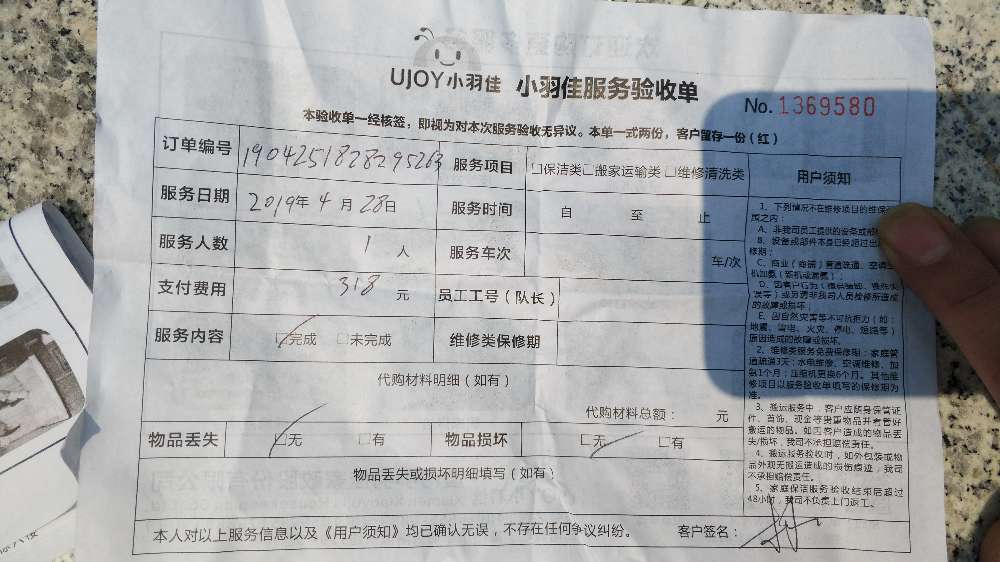 UJOY小羽佳 小羽佳服务验收单
No. 1369580
本验收单一经核签，即视为对本次服务验收无异议。本单一式两份，客户留存一份（红）
订单编号 1904251828295263 服务项目 □保洁类□搬家运输类 □维修清洗类
服务日期 2019年 4 月 28日 服务时间 自 至 止
服务人数 1 人 服务车次 车/次
支付费用 318 元 员工工号（队长）
服务内容 ☑完成 □未完成 维修类保修期
代购材料明细（如有）
代购材料总额： 元
物品丢失 ☑无 □有 物品损坏 ☑无 □有
物品丢失或损坏明细填写（如有）
本人对以上服务信息以及《用户须知》均已确认无误，不存在任何争议纠纷。 客户签名：
用户须知
1、下列情况不在维修项目的维保
围之内：
A、非我司员工提供的设备或部
B、设备或部件本身已经超过出
修期；
C、商业（商铺）管道疏通、空调
机加氨（新机或漏氨）；
误等）或另请非我司人员检修所造成
的故障或损坏；
E、因自然灾害等不可抗拒力（如：
地震、雷电、火灾、停电、短路等）
原因造成的故障或损坏。
2、维修类服务免费保修期：家庭管
道疏通3天；水电维修、空调维修、加
氨1个月；压缩机更换6个月。其他维
修项目以服务验收单填写的保修期为
准。
3、搬运服务中，客户应随身保管证
件、首饰、现金等贵重物品并看管好
搬运的物品。如因客户造成的物品丢
失/损坏，我司不承担赔偿责任。
4、搬运服务验收时，如外包装或物
品外观无搬运造成的损伤痕迹，我司
不承担赔偿责任。
5、家庭保洁服务验收结束后超过
48小时，我司不负责上门返工。